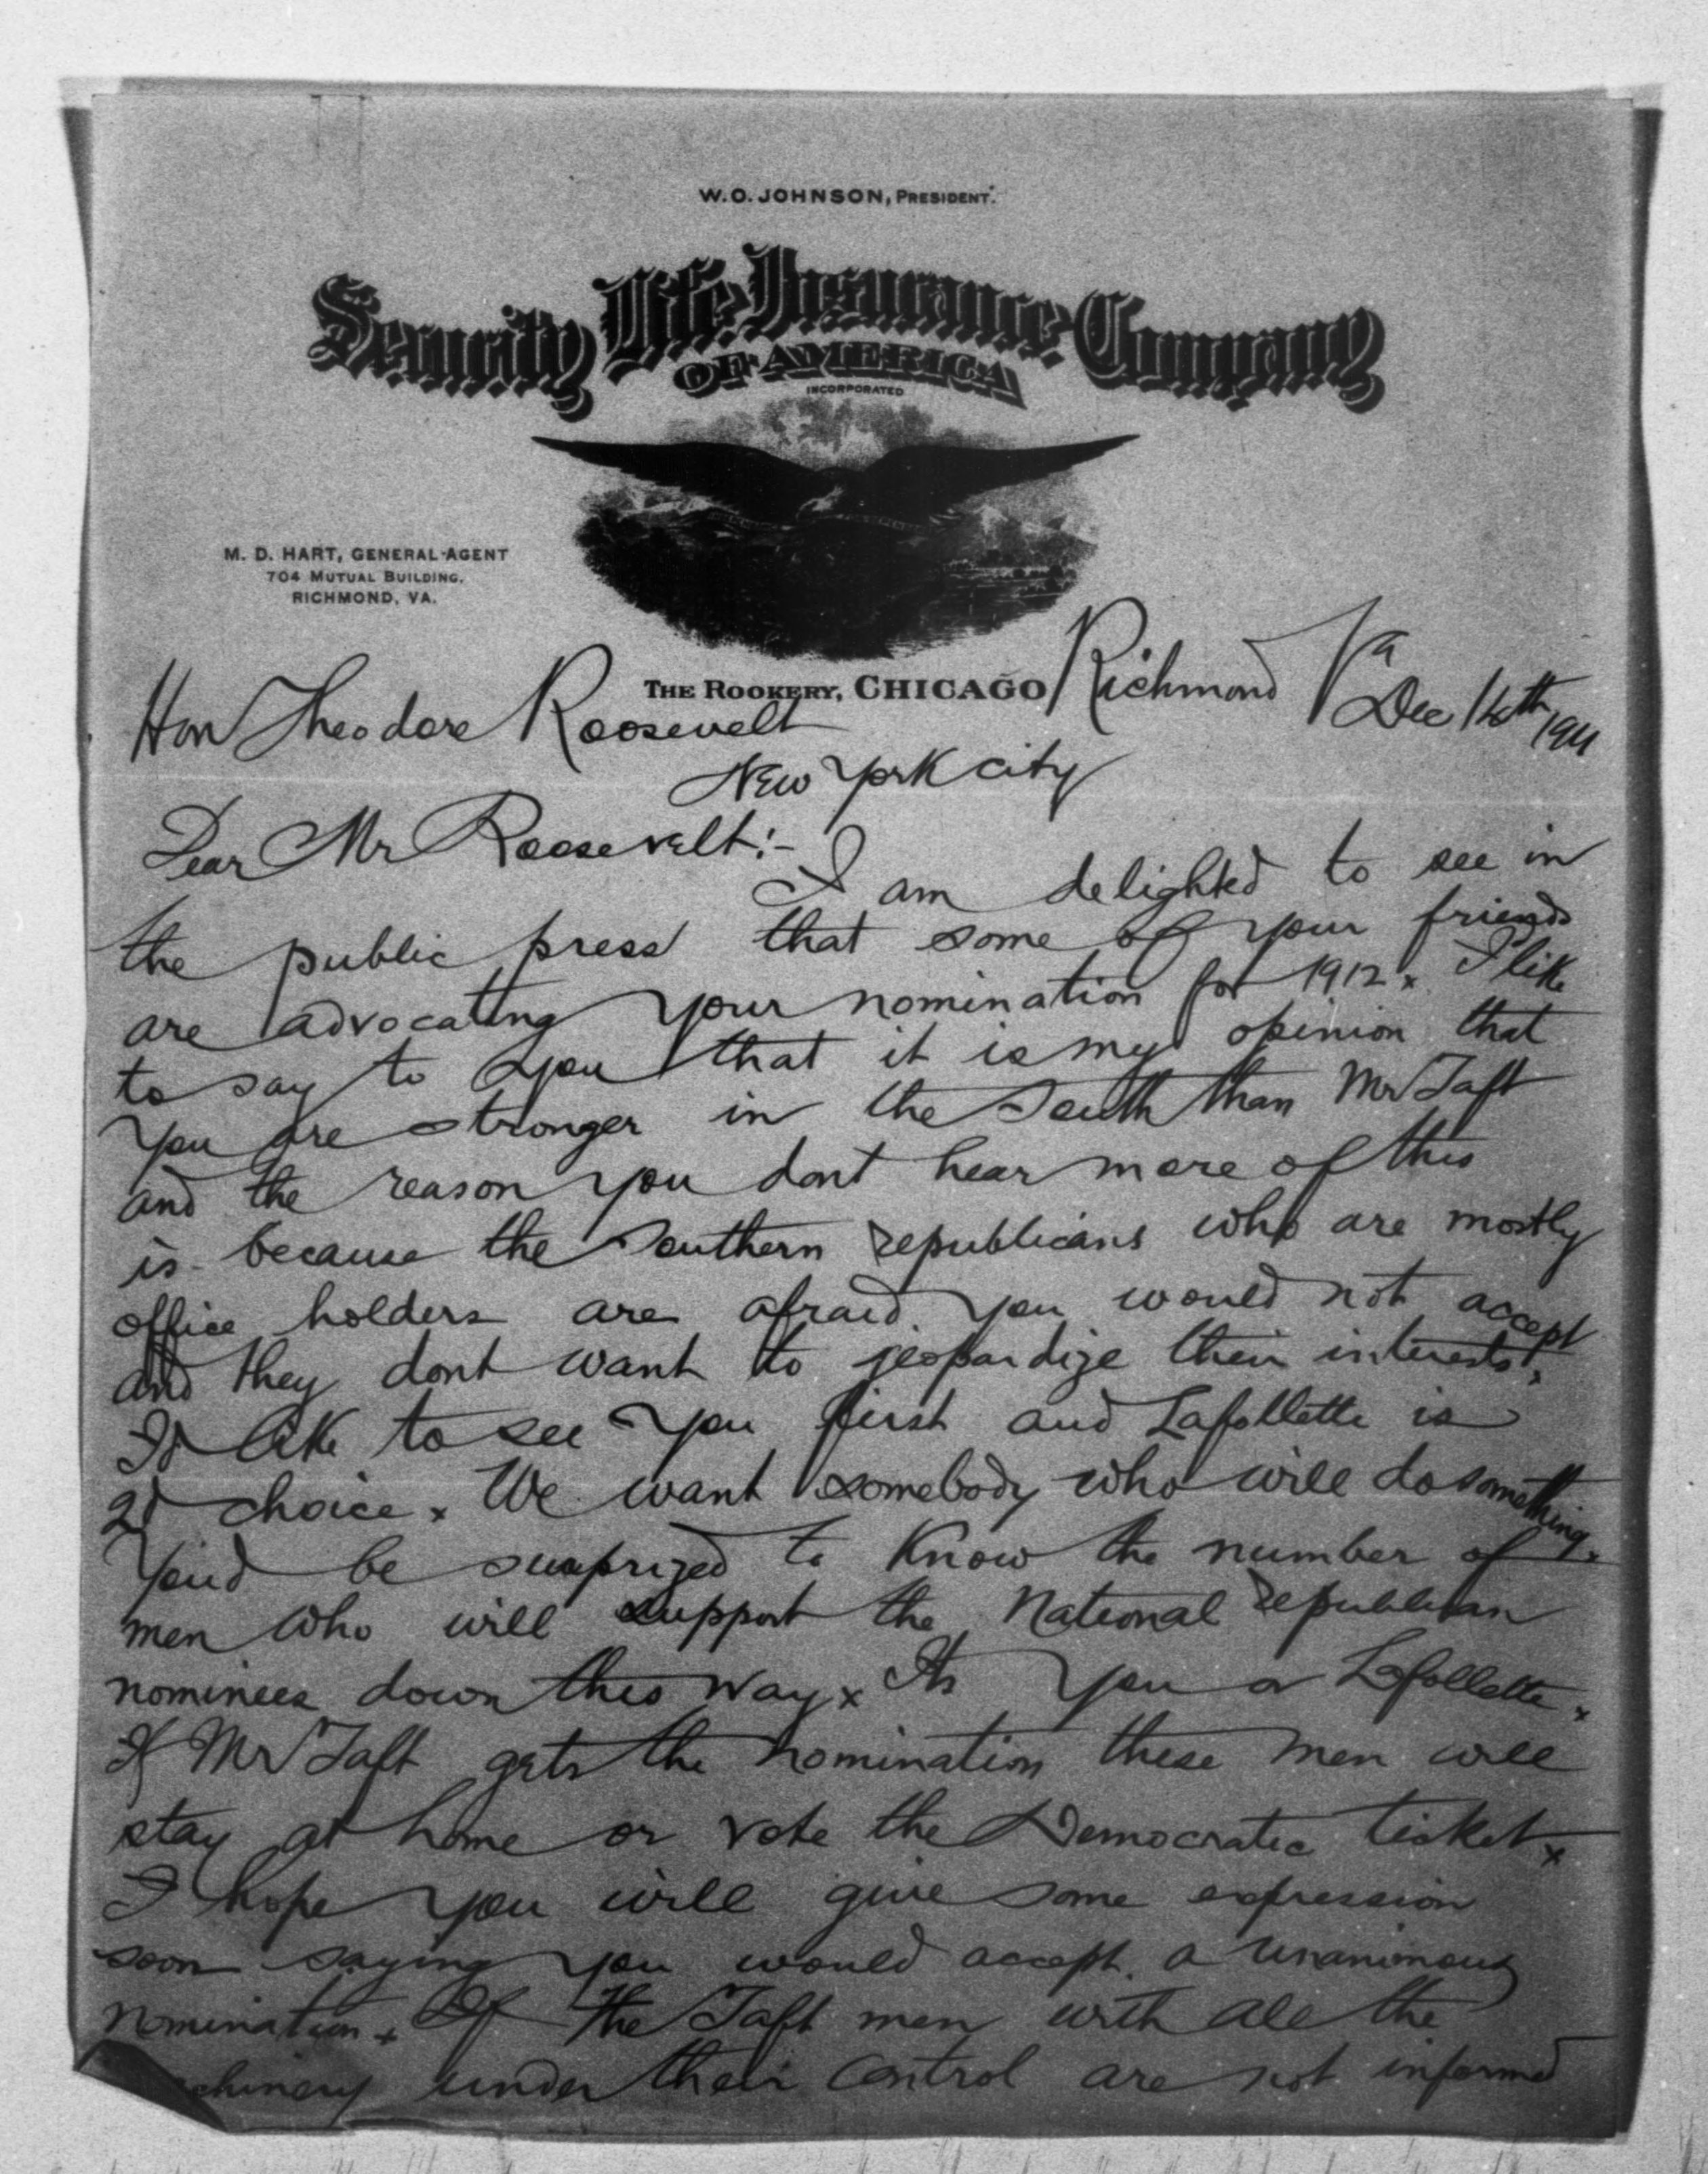 W.O. JOHNSON, PRESIDENT.
Security Life Insurance Company
OF AMERICA
INCORPORATED
M. D. HART, GENERAL AGENT
704 MUTUAL BUILDING.
RICHMOND, VA.
THE ROOKERY, CHICAGO
Richmond Va
Dec 1911
Hon Theodore Roosevelt
New York city
Dear Mr Roosevelt:-
I am delighted to see in
the public press that some of your friends
are advocating your nomination for 1912 x I like
to say to you that it is my opinion that
you are stronger in the South than Mr Taft
and the reason you dont hear more of this
is because the Southern republicans who are mostly
office holders are afraid you would not accept
and they dont want to jeopardize their interests.
I'd like to see you first and Lafollette is
2d choice x We want somebody who will do something.
You'd be surprized to know the number of
men who will support the National republican
nominees down this way x Its you or Lafollette x
If Mr Taft gets the nomination these men will
stay at home or vote the Democratic ticket x
I hope you will give some expression
soon saying you would accept a unanimous
nomination x If the Taft men with all the
chinery under their control are not informed